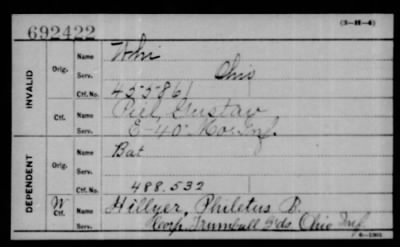 692422
(3-H-4)
INVALID
Orig.
Name
Whi
Serv.
Ohio
Ctf. No.
455861
Ctf.
Name
Piel, Gustav
Serv.
E-40 Mo. Inf.
DEPENDENT
Orig.
Name
Bat
Serv.
Ctf. No.
488.532
W
Ctf.
Name
Hillyer, Philetus B.
Serv.
Corp. Trumbull Gds. Ohio Inf